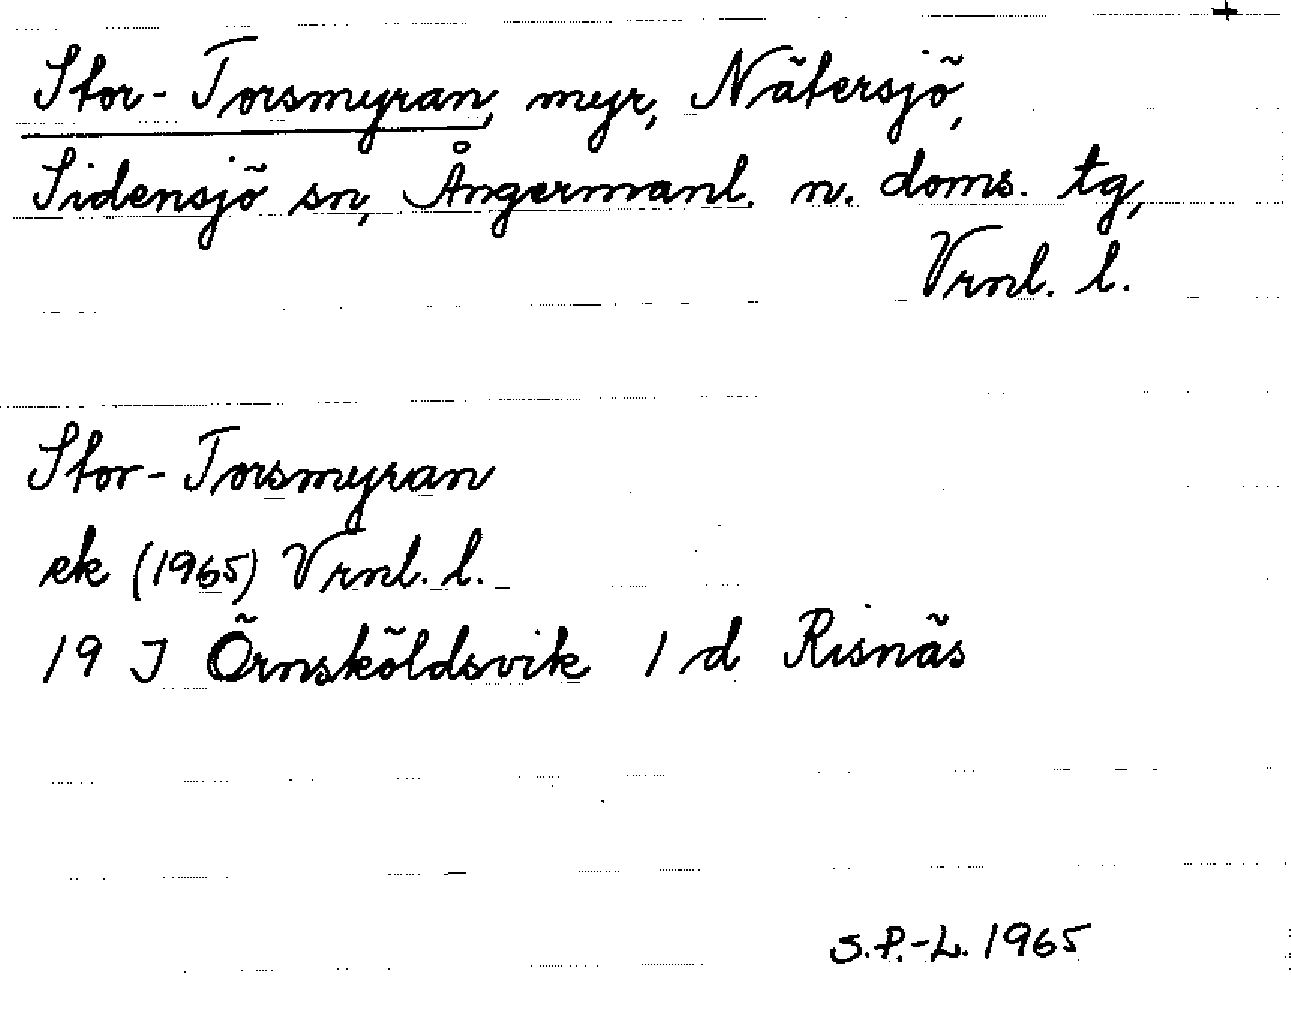 Stor-Torsmyran, myr, Nätersjö,
Sidensjö sn, Ångermanl. n. doms. tg,
Vrnl. l.
Stor-Torsmyran
ek (1965) Vrnl. l.
19 J Örnsköldsvik 1 d Risnäs
S.P.-L. 1965